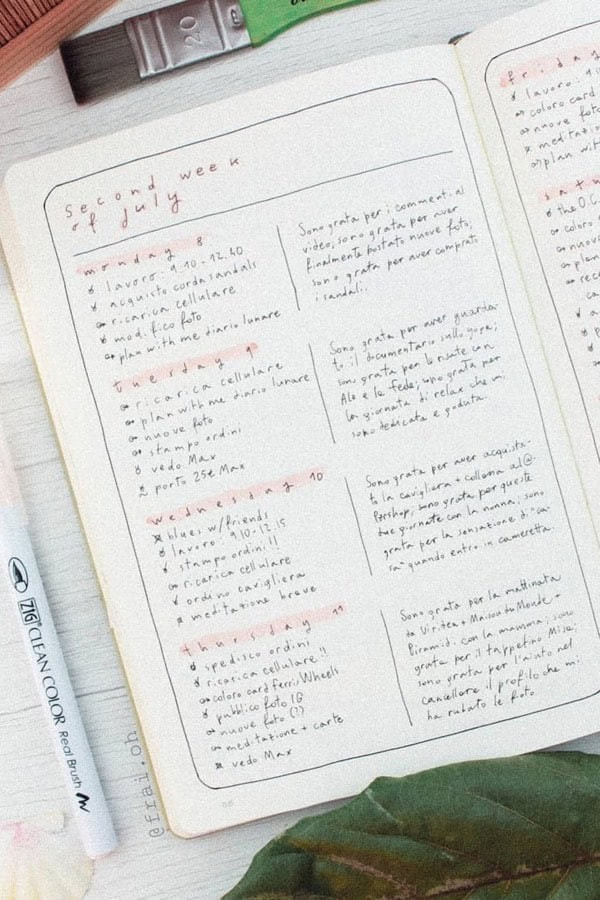 20
second week
of July
monday 8
lavoro: 9.10-12.40
acquisto corda sandals
ricarica cellulare
modifico foto
plan with me diario lunare
Sono grata per i commenti al
video; sono grata per aver
finalmente postato nuove foto;
sono grata per aver comprato
i sandali.
tuesday 9
ricarica cellulare
plan with me diario lunare
nuove foto
stampo ordini
vedo Max
porto 25€ Max
Sono grata per aver guarda-
to il documentario sullo yoga;
sono grata per le risate con
Ale e la fede; sono grata per
la giornata di relax che mi
sono dedicata e goduta.
wednesday 10
blues w/friends
lavoro: 9.10-12.15
stampo ordini!!
ricarica cellulare
ordino cavigliera
meditazione breve
Sono grata per aver acquista-
to la cavigliera + collana al@
shop; sono grata per queste
due giornate con la nonna; sono
grata per la sensazione di "ca-
sa" quando entro in cameretta.
thursday 11
spedisco ordini
ricarica cellulare!!
coloro card Ferris Wheels
pubblico foto IG
nuove foto (?)
meditazione + carte
vedo Max
Sono grata per la mattinata
da + Maison du Monde +
Piramidi con la mamma; sono
grata per il tappetino Missi;
sono grata per l'aiuto nel
cancellare il profilo che mi
ha rubato le foto.
friday
lavoro: 9.1
coloro card
nuove foto
meditazio
plan wit
satu
the O.C.
coloro
nuove
plan
rec
ca
ZIG CLEAN COLOR Real Brush
@frai.oh